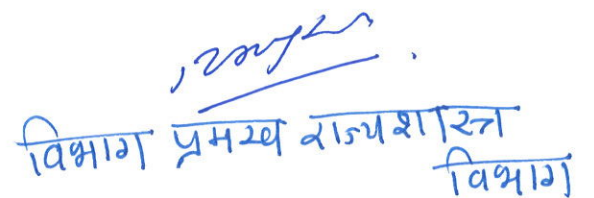 विभाग प्रमख राज्यशास्त्र
विभाग